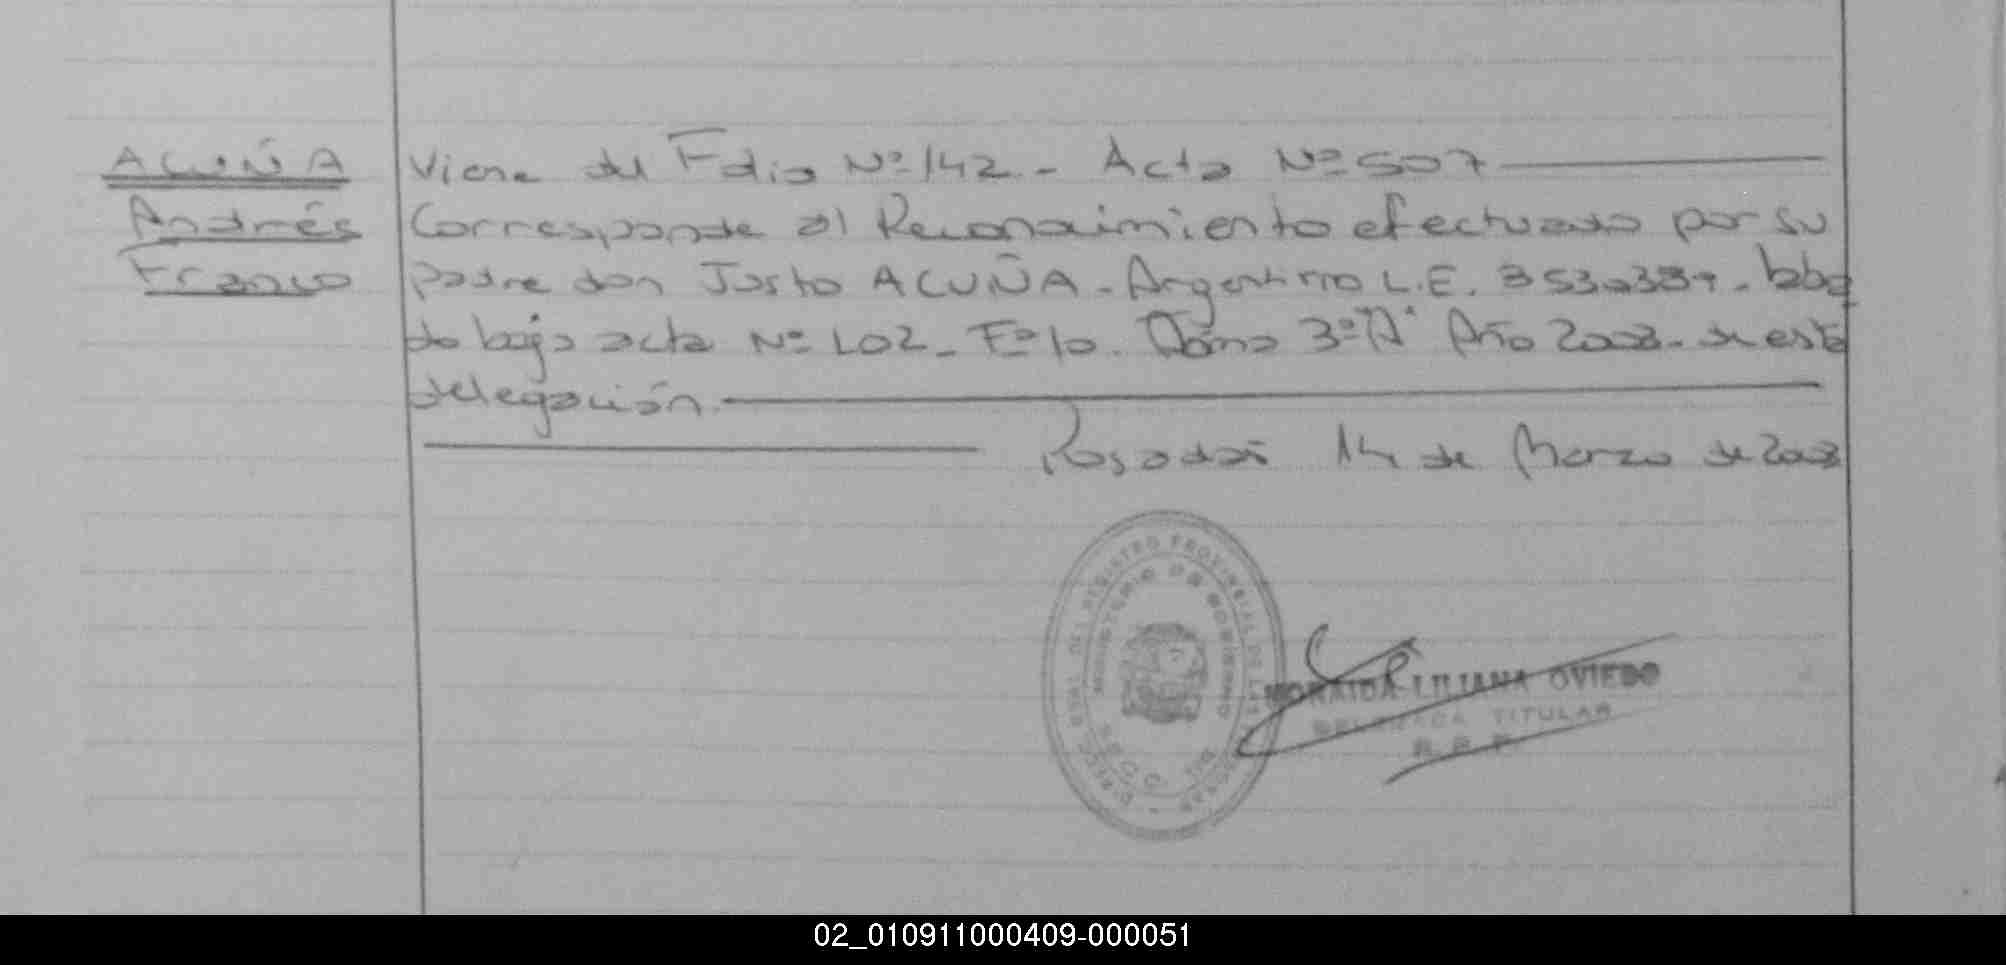 ACUÑA
Andrés
Franco
Viene del Folio Nº 142 - Acta Nº 507
Corresponde al Reconocimiento efectuado por su
padre don Justo ACUÑA - Argentino L.E.
do bajo acta Nº 102 - Fº 10. Tomo 3º "A" Año 2003 - de esta
delegación.
Posadas 14 de Marzo de 2003
REGISTRO PROVINCIAL DE LAS
MINISTERIO DE GOBIERNO
LILIANA OVIEDO
DELEGADA TITULAR
R. P. P.
02_010911000409-000051